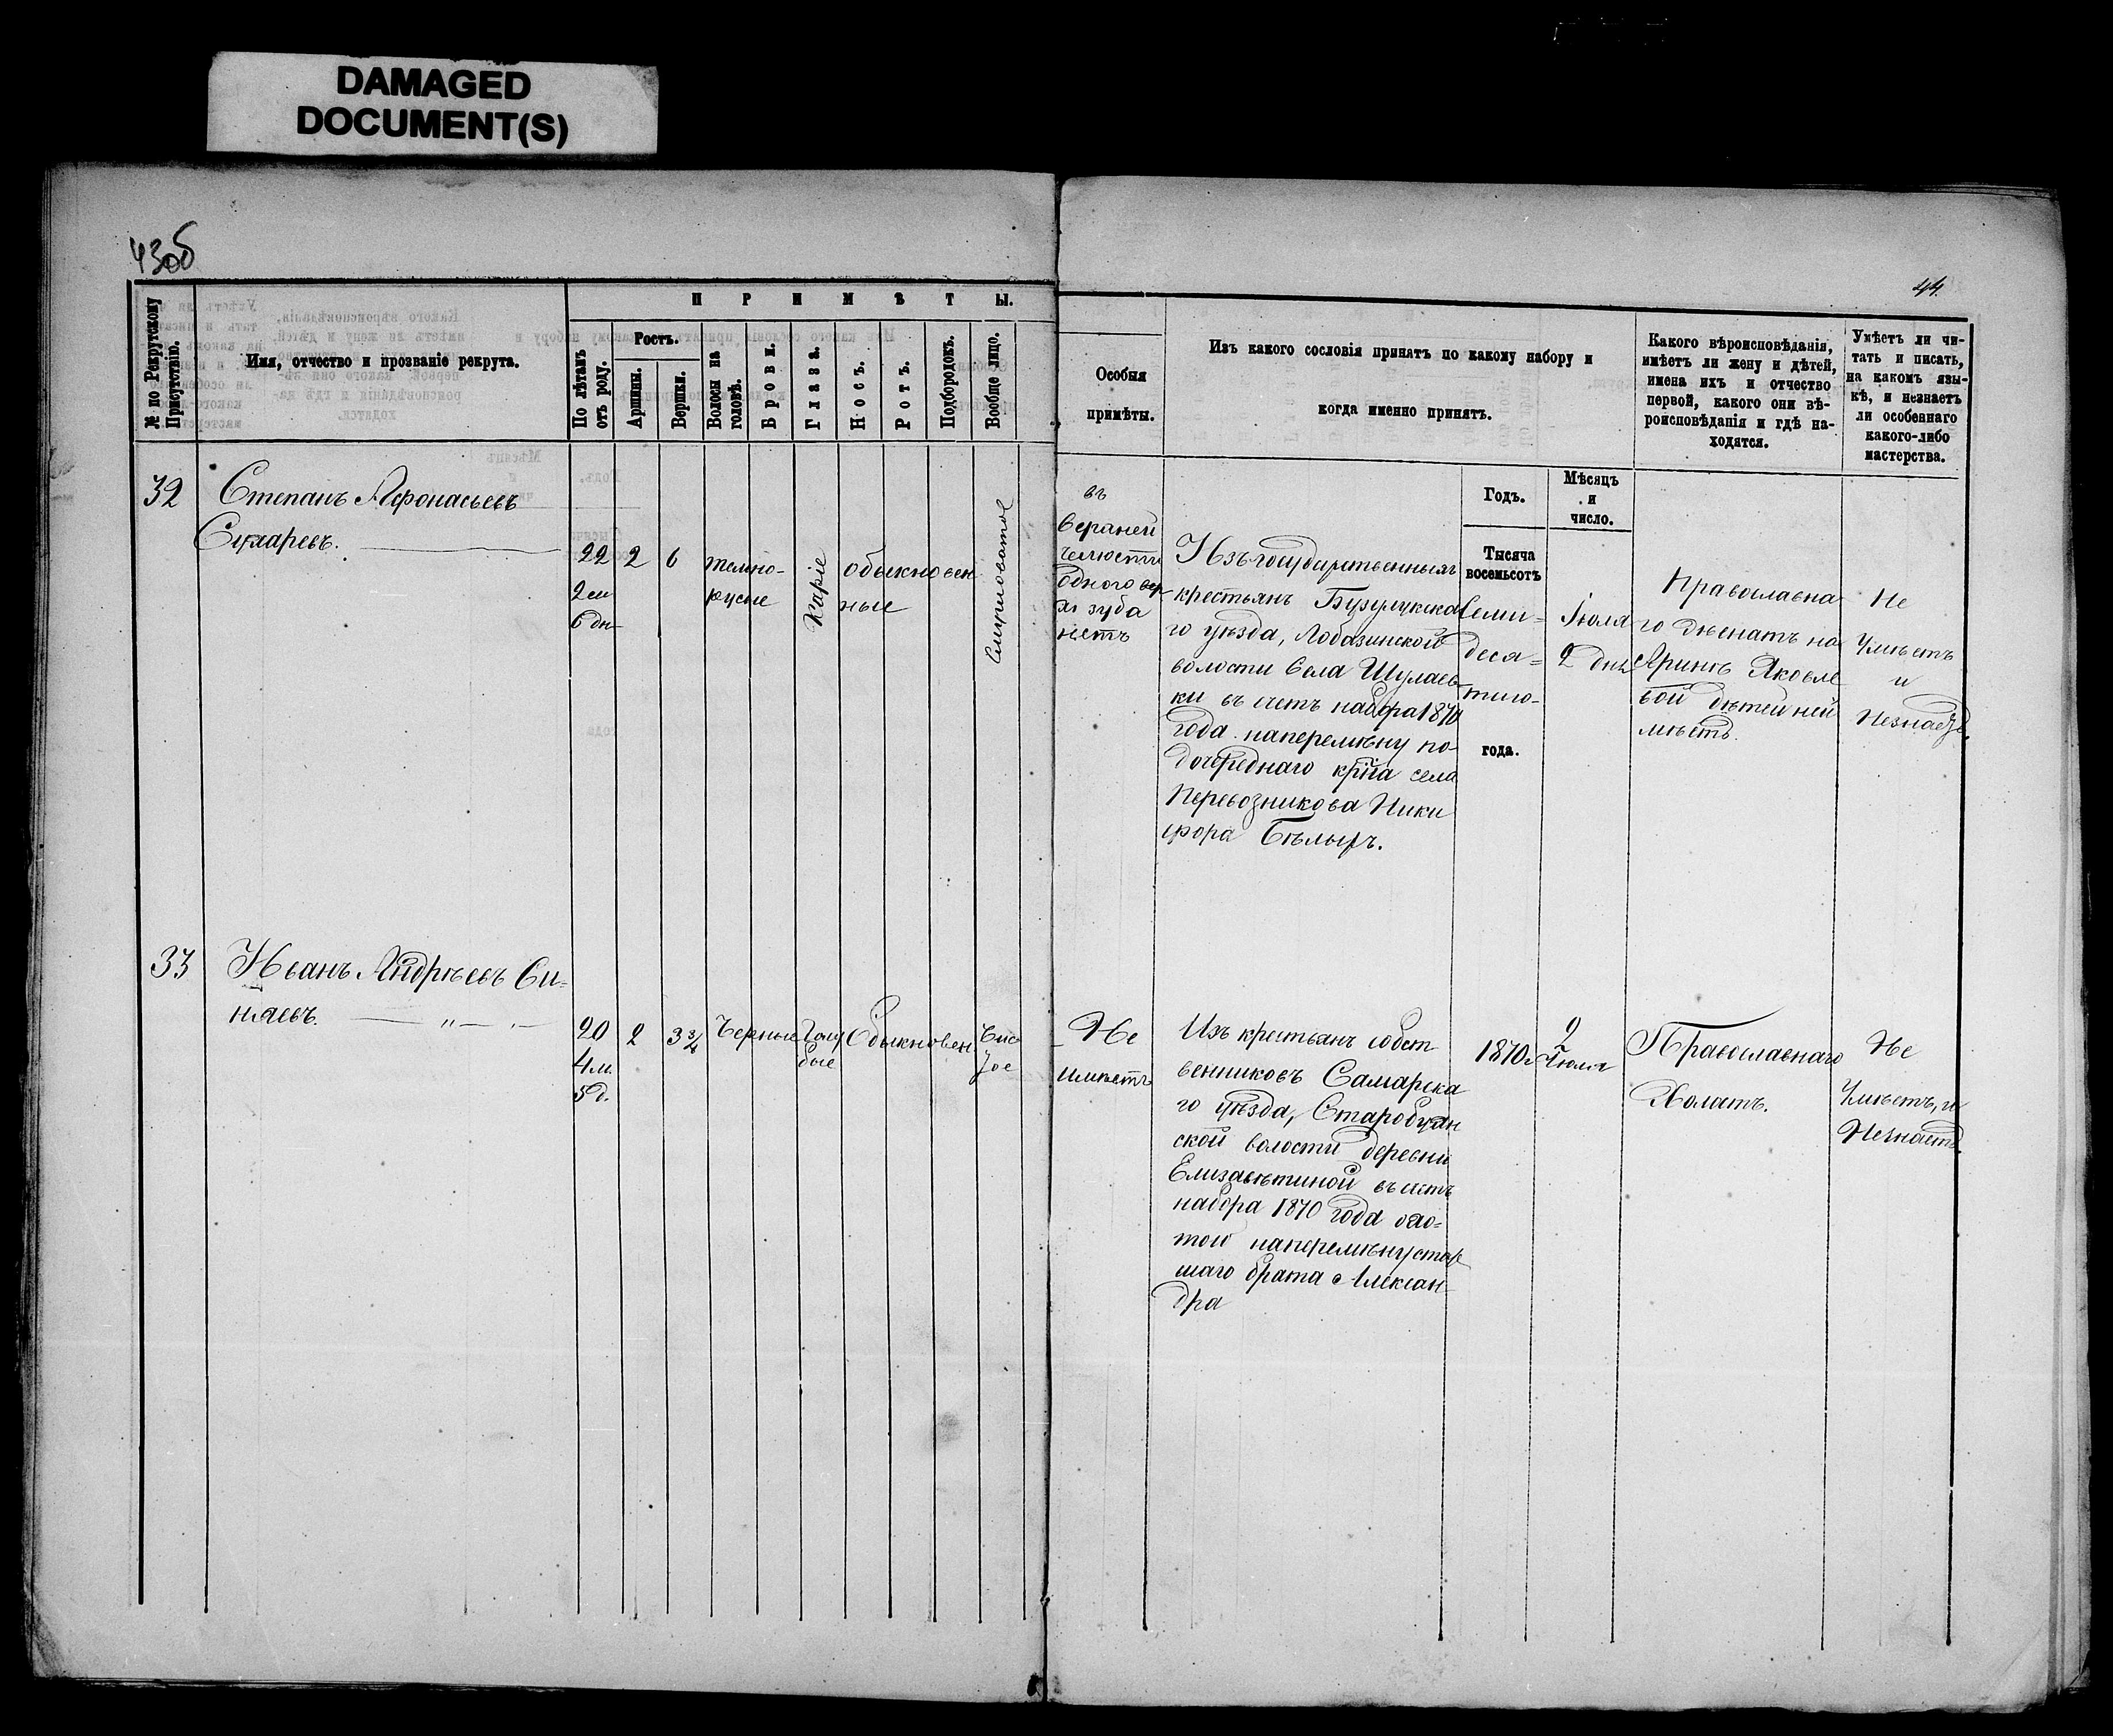 DAMAGED
DOCUMENT(S)
43об
44.
№ по Рекрутскому
Присутствію.
Имя, отчество и прозваніе рекрута.
ПРИМѢТЫ.
По лѣтамъ
отъ роду.
Ростъ.
Аршины.
Вершки.
Волосы на
головѣ.
Брови.
Глаза.
Носъ.
Ротъ.
Подбородокъ.
Вообще лицо.
Особыя
примѣты.
Изъ какого сословія принятъ по какому набору и
когда именно принятъ.
Какого вѣроисповѣданія,
имѣетъ ли жену и дѣтей,
имена ихъ и отчество
первой, какого они вѣ-
роисповѣданія и гдѣ на-
ходятся.
Умѣетъ ли чи-
тать и писать,
на какомъ язы-
кѣ, и незнаетъ
ли особеннаго
какого-либо
мастерства.
Годъ.
Мѣсяцъ
и
число.
32
Степанъ Афонасьевъ
22
2 м
6 дн
2
6
темно-
русые
Каріе
обыкновен
ные
въ
верхней
челюсти
одного
зуба
нетъ
Изъ государственныхъ
крестьянъ Бузулукска
го уѣзда, Лобазинской
волости села Шулаев
ки въ счетъ набора 1870
года наперемѣну по-
дочереднаго кр̃на села
Перевозникова Ники
фора Бѣлыхъ.
Тысяча
восемьсотъ
Семи-
деся-
таго-
года.
Іюля
2 дня
Православна
го женатъ на
Аринѣ Яковле
вой дѣтей неи
мѣетъ.
Не
Умѣетъ
и
Незнаетъ.
33
Иванъ Андрѣевъ Си-
няевъ.
20
4 м.
5 д.
2
3 3/4
Черные
Голу
бые
Обыкновен
Чис
тое
Не
имѣетъ
Изъ крестьянъ собст
венниковъ Самарска
го уѣзда, Старобуян
ской волости деревни
Елизаветиной въ счетъ
набора 1870 года охо-
тою наперемѣну стар
шаго брата Алексан-
дра
1870 г
2
Іюля
Православнаго
Холатъ.
Не
Умѣетъ, и
Незнаетъ.